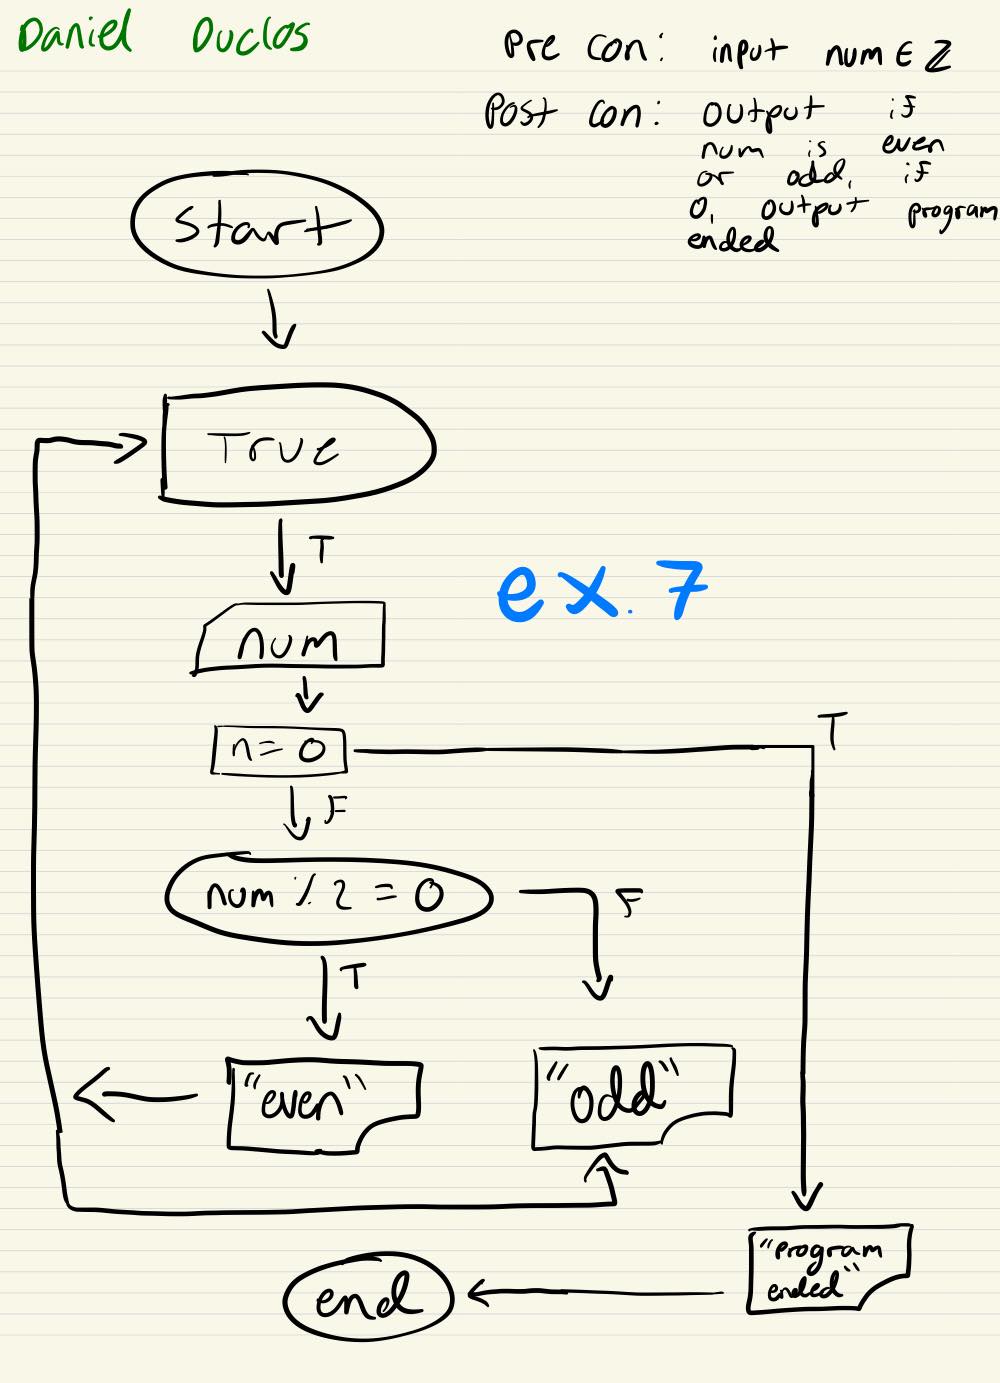 Daniel Duclos
Pre con: input num ∈ ℤ
Post con: output if
num is even
or odd, if
0, output program
ended
Start
True
T
ex. 7
num
n = 0
T
F
num % 2 = 0
F
T
"even"
"odd"
"program
ended"
end